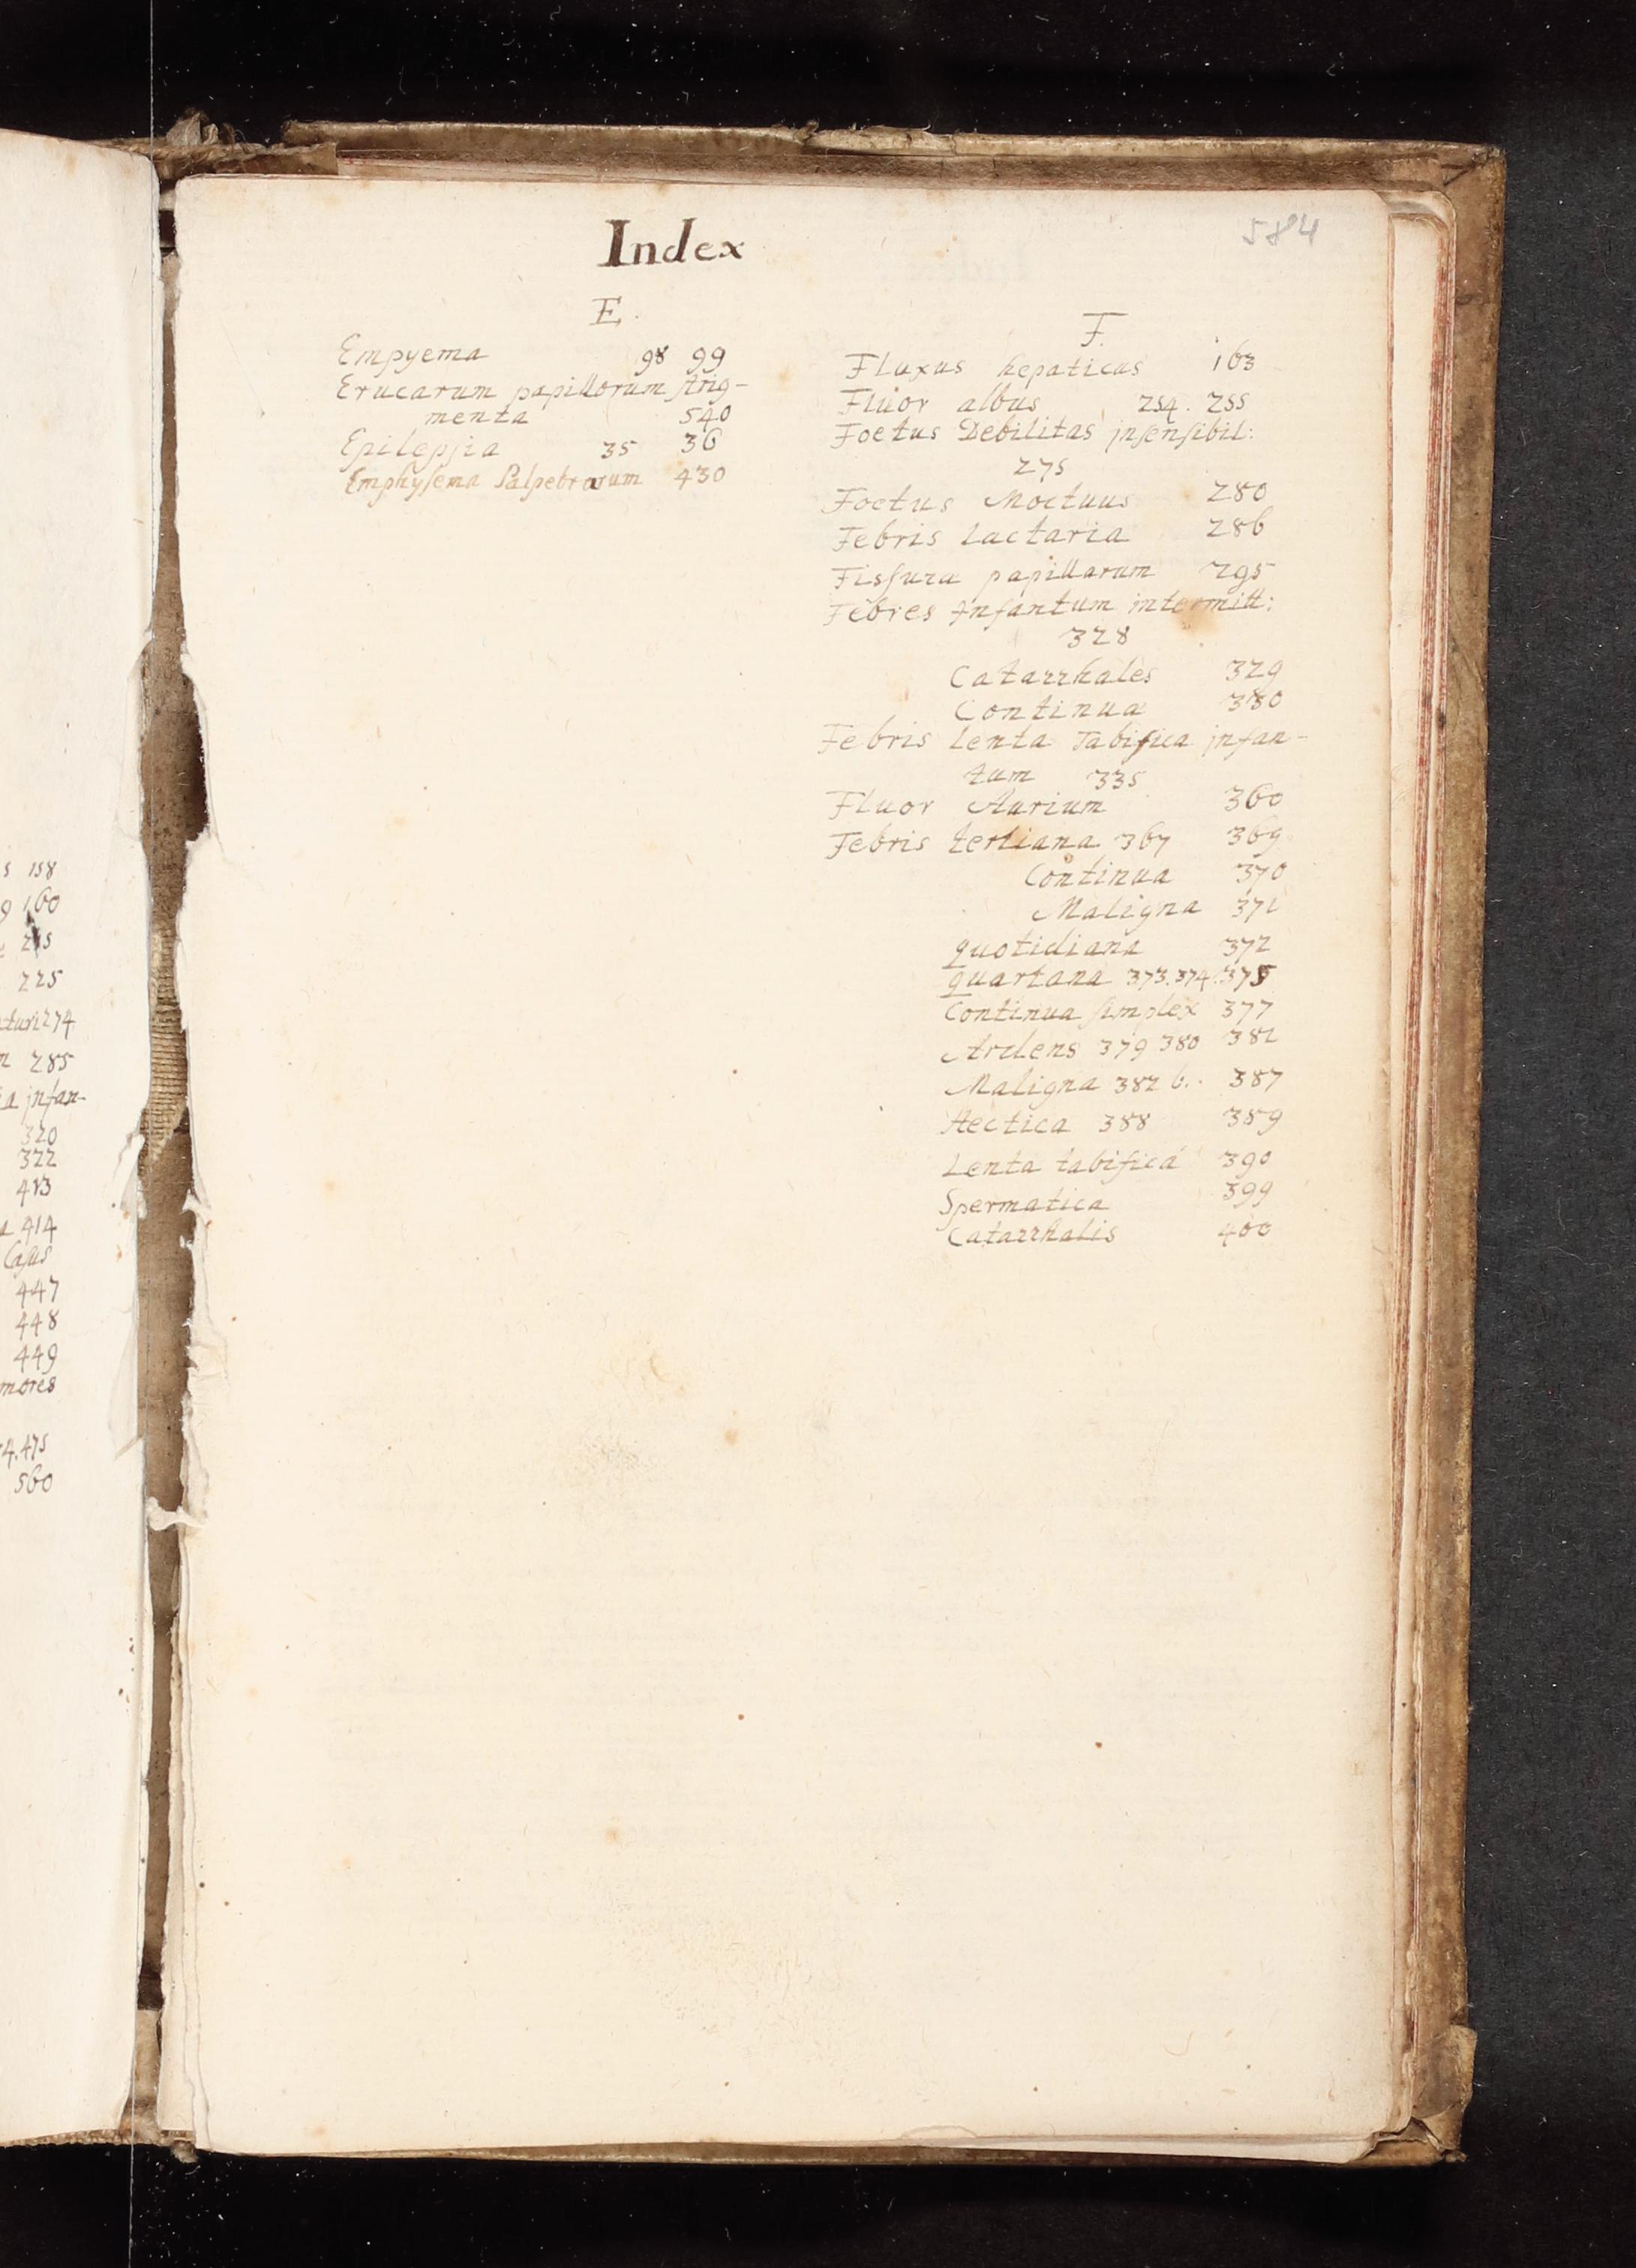 s 158
9 160
225
turi 274
n 285
a jnfan-
320
322
413
a 414
Casus
447
448
449
mores
4.475
560
Index
584
E.
Empyema 98 99
Erucarum papillorum strig-
menta 540
Epilepsia 35 36
Emphysema Palpebrarum 430
F.
Fluxus hepaticus 163
Fluor albus 254. 255
Foetus Debilitas jnsensibil:
275
Foetus Moctuus 280
Febris Lactaria 286
Fissura papillarum 295
Febres Infantum intermitt:
328
Catarrhales 329
Continua 330
Febris Lenta Tabifica jnfan-
tum 335
Fluor Aurium 360
Febris tertiana 367 369
Continua 370
Maligna 371
quotidiana 372
quartana 373.374.375
Continua simplex 377
Ardens 379 380 381
Maligna 382 b.. 387
Hectica 388 389
Lenta tabifica 390
Spermatica 399
Catarrhalis 400